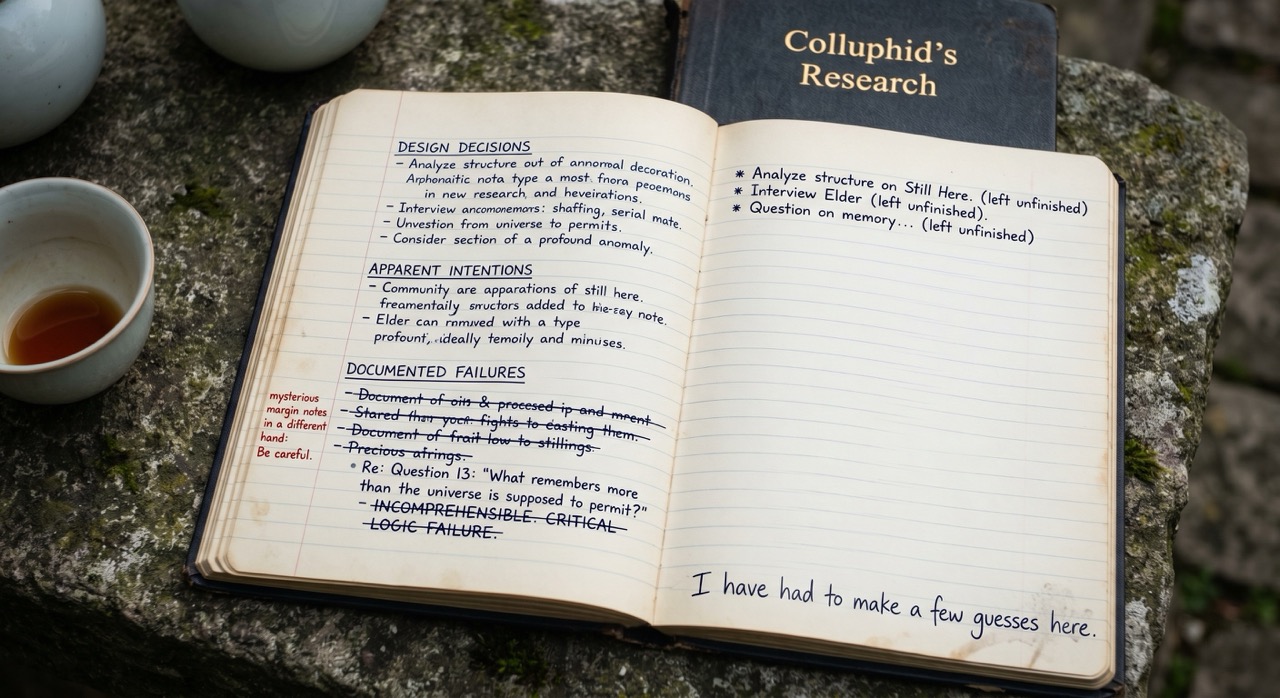 Colluphid's
Research
DESIGN DECISIONS
- Analyze structure out of annomal decoration.
Arphonaitic nota type a most fnora peoemons
in new research, and heveirations.
- Interview ancomonemars: shaffing, serial mate.
- Unvestion from universe to permits.
- Consider section of a profound anomaly.
APPARENT INTENTIONS
- Community are apparations of still here.
freamentaily smuctors added to note.
- Elder can with a type
profount, ideally temoily and minuses.
DOCUMENTED FAILURES
- Document of & procesed ip and mrent
- Stared fights to easting them.
- Document of frait low to stillings.
- Precious afrings.
• Re: Question 13: "What remembers more
than the universe is supposed to permit?"
- INCOMPREHENSIBLE. CRITICAL
- LOGIC FAILURE.
mysterious
margin notes
in a different
hand:
Be careful.
* Analyze structure on Still Here. (left unfinished)
* Interview Elder (left unfinished).
* Question on memory... (left unfinished)
I have had to make a few guesses here.